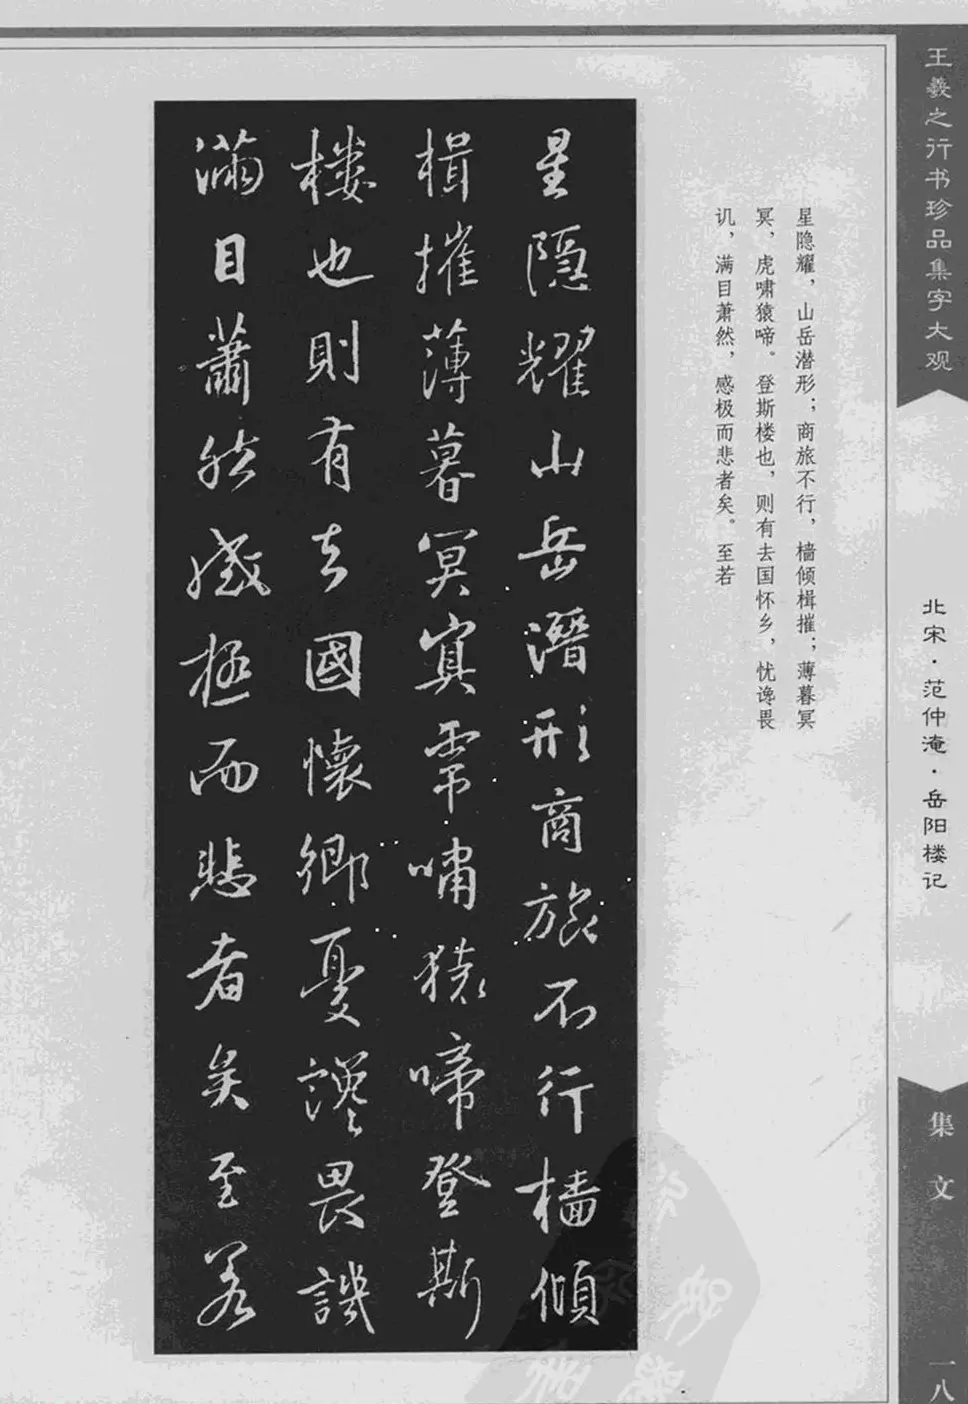 王羲之行书珍品集字大观
北宋·范仲淹·岳阳楼记
集文
一八
星隐耀，山岳潜形；商旅不行，樯倾楫摧；薄暮冥
冥，虎啸猿啼。登斯楼也，则有去国怀乡，忧谗畏
讥，满目萧然，感极而悲者矣。至若
星隱耀山岳潛形商旅不行檣傾
楫摧薄暮冥冥虎嘯猿啼登斯
樓也則有去國懷鄉憂讒畏譏
滿目蕭然感極而悲者矣至若